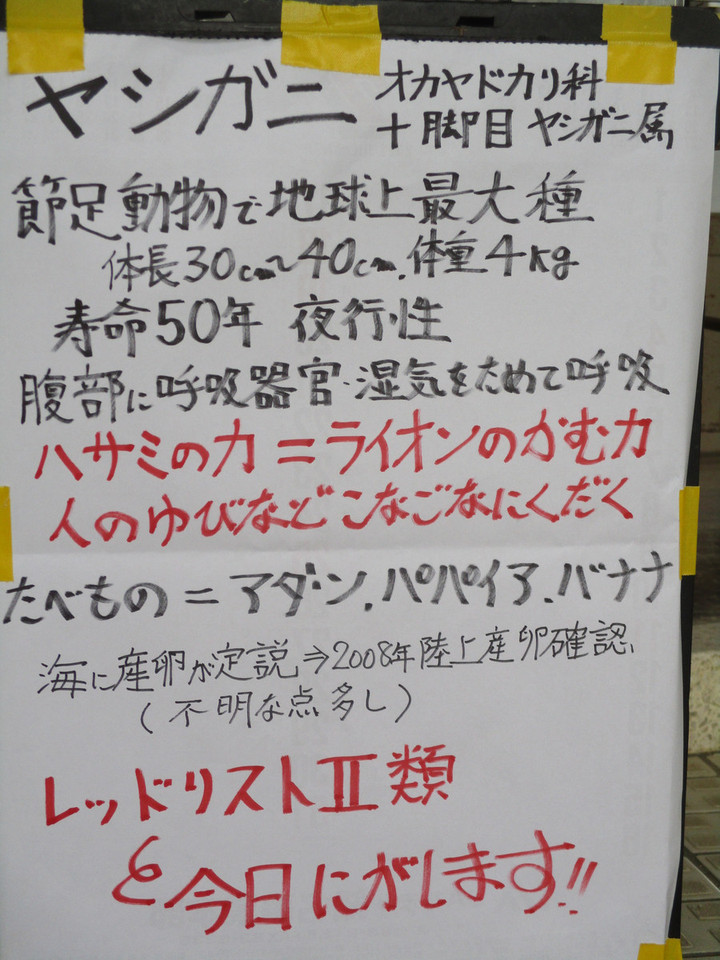 ヤシガニ オカヤドカリ科
十脚目 ヤシガニ属
節足動物で地球上最大種
体長30cm~40cm.体重4kg
寿命50年 夜行性
腹部に呼吸器官・湿気をためて呼吸
ハサミの力=ライオンのかむ力
人のゆびなどこなごなにくだく
たべもの=アダン.パパイア.バナナ
海に産卵が定説⇒2008年陸上産卵確認、
(不明な点多し)
レッドリストⅡ類
と今日にがします!!